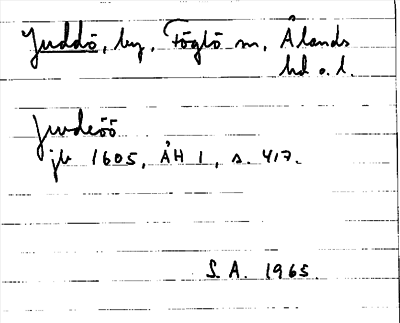 Juddö, by, Föglö sn, Ålands
hd o. l.
Judeöö
jb 1605, ÅH 1, s. 417.
S. A. 1965.